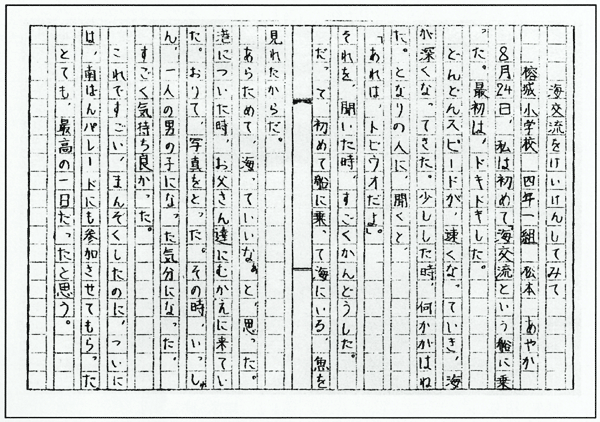 海交流をけいけんしてみて
榕城小学校 四年一組 松本 あやか
8月24日、私は初めて「海交流という船に乗
った。最初は、ドキドキした。
どんどんスピードが、速くなっていき、海
が深くなってきた。少しした時、何かがはね
た。となりの人に、聞くと、
「あれは、トビウオだよ」。
それを、聞いた時、すごくかんどうした。
だって初めて船に乗って海にいる、魚を
見れたからだ。
あらためて、海っていいなぁと、思った。
港についた時、お父さん達にむかえに来てい
た。おりて、写真をとった。その時、いっしゅ
ん、一人の男の子になった気分になった。
すごく気持ち良かった。
これですごい、まんぞくしたのに、ついに
は、南ばんパレードにも参加させてもらった
とても、最高の一日だったと思う。